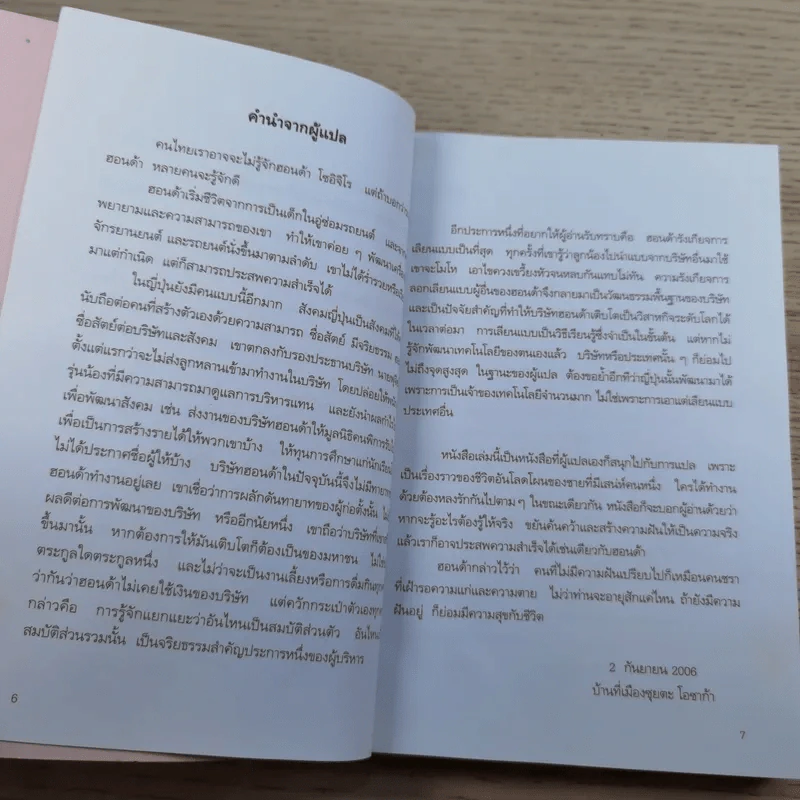 คำนำจากผู้แปล
คนไทยเราอาจจะไม่รู้จักฮอนด้า โซอิจิโร แต่ถ้าบอกว่า
ฮอนด้า หลายคนจะรู้จักดี
ฮอนด้าเริ่มชีวิตจากการเป็นเด็กในอู่ซ่อมรถยนต์ และ
พยายามและความสามารถของเขา ทำให้เขาค่อย ๆ พัฒนา
จักรยานยนต์ และรถยนต์นั่งขึ้นมาตามลำดับ เขาไม่ได้ร่ำรวยหรือ
มาแต่กำเนิด แต่ก็สามารถประสพความสำเร็จได้
ในญี่ปุ่นยังมีคนแบบนี้อีกมาก สังคมญี่ปุ่นเป็นสังคมที่ให้
นับถือต่อคนที่สร้างตัวเองด้วยความสามารถ ซื่อสัตย์ มีจริยธรรม
ซื่อสัตย์ต่อบริษัทและสังคม เขาตกลงกับรองประธานบริษัท
ตั้งแต่แรกว่าจะไม่ส่งลูกหลานเข้ามาทำงานในบริษัท โดยปล่อยให้
รุ่นน้องที่มีความสามารถมาดูแลการบริหารแทน และยังนำผลกำไร
เพื่อพัฒนาสังคม เช่น ส่งงานของบริษัทฮอนด้าให้มูลนิธิคนพิการ
เพื่อเป็นการสร้างรายได้ให้พวกเขาบ้าง ให้ทุนการศึกษาแก่นักเรียน
ไม่ได้ประกาศชื่อผู้ให้บ้าง บริษัทฮอนด้าในปัจจุบันนี้จึงไม่มีทายาท
ฮอนด้าทำงานอยู่เลย เขาเชื่อว่าการผลักดันทายาทของผู้ก่อตั้งนั้น
ผลดีต่อการพัฒนาของบริษัท หรืออีกนัยหนึ่ง เขาถือว่าบริษัทที่
ขึ้นมานั้น หากต้องการให้มันเติบโตก็ต้องเป็นของมหาชน
ตระกูลใดตระกูลหนึ่ง และไม่ว่าจะเป็นงานเลี้ยงหรือการดื่มกิน
ว่ากันว่าฮอนด้าไม่เคยใช้เงินของบริษัท แต่ควักกระเป๋าตัวเอง
กล่าวคือ การรู้จักแยกแยะว่าอันไหนเป็นสมบัติส่วนตัว อันไหน
สมบัติส่วนรวมนั้น เป็นจริยธรรมสำคัญประการหนึ่งของผู้บริหาร
6
อีกประการหนึ่งที่อยากให้ผู้อ่านรับทราบคือ ฮอนด้ารังเกียจการ
เลียนแบบเป็นที่สุด ทุกครั้งที่เขารู้ว่าลูกน้องไปนำแบบจากบริษัทอื่นมาใช้
เขาจะโมโห เอาไขควงเขวี้ยงหัวจนหลบกันแทบไม่ทัน ความรังเกียจการ
ลอกเลียนแบบผู้อื่นของฮอนด้าจึงกลายมาเป็นวัฒนธรรมพื้นฐานของบริษัท
และเป็นปัจจัยสำคัญที่ทำให้บริษัทฮอนด้าเติบโตเป็นวิสาหกิจระดับโลกได้
ในเวลาต่อมา การเลียนแบบเป็นวิธีเรียนรู้ซึ่งจำเป็นในขั้นต้น แต่หากไม่
รู้จักพัฒนาเทคโนโลยีของตนเองแล้ว บริษัทหรือประเทศนั้น ๆ ก็ย่อมไป
ไม่ถึงจุดสูงสุด ในฐานะของผู้แปล ต้องขอย้ำอีกทีว่าญี่ปุ่นนั้นพัฒนามาได้
เพราะการเป็นเจ้าของเทคโนโลยีจำนวนมาก ไม่ใช่เพราะการเอาแต่เลียนแบบ
ประเทศอื่น
หนังสือเล่มนี้เป็นหนังสือที่ผู้แปลเองก็สนุกไปกับการแปล เพราะ
เป็นเรื่องราวของชีวิตอันโลดโผนของชายที่มีเสน่ห์คนหนึ่ง ใครได้ทำงาน
ด้วยต้องหลงรักกันไปตาม ๆ ในขณะเดียวกัน หนังสือก็จะบอกผู้อ่านด้วยว่า
หากจะรู้อะไรต้องรู้ให้จริง ขยันค้นคว้าและสร้างความฝันให้เป็นความจริง
แล้วเราก็อาจประสพความสำเร็จได้เช่นเดียวกับฮอนด้า
ฮอนด้ากล่าวไว้ว่า คนที่ไม่มีความฝันเปรียบไปก็เหมือนคนชรา
ที่เฝ้ารอความแก่และความตาย ไม่ว่าท่านจะอายุสักแค่ไหน ถ้ายังมีความ
ฝันอยู่ ก็ย่อมมีความสุขกับชีวิต
2 กันยายน 2006
บ้านที่เมืองซุยตะ โอซาก้า
7